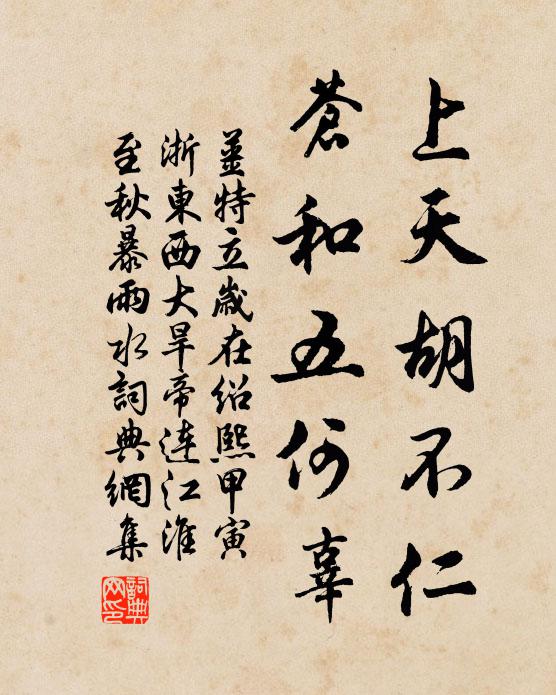 上天胡不仁
蒼和五何辜
薑特立歲在紹熙甲寅
浙東西大旱帝連江淮
至秋暴雨水詞典網集
詞典
网印